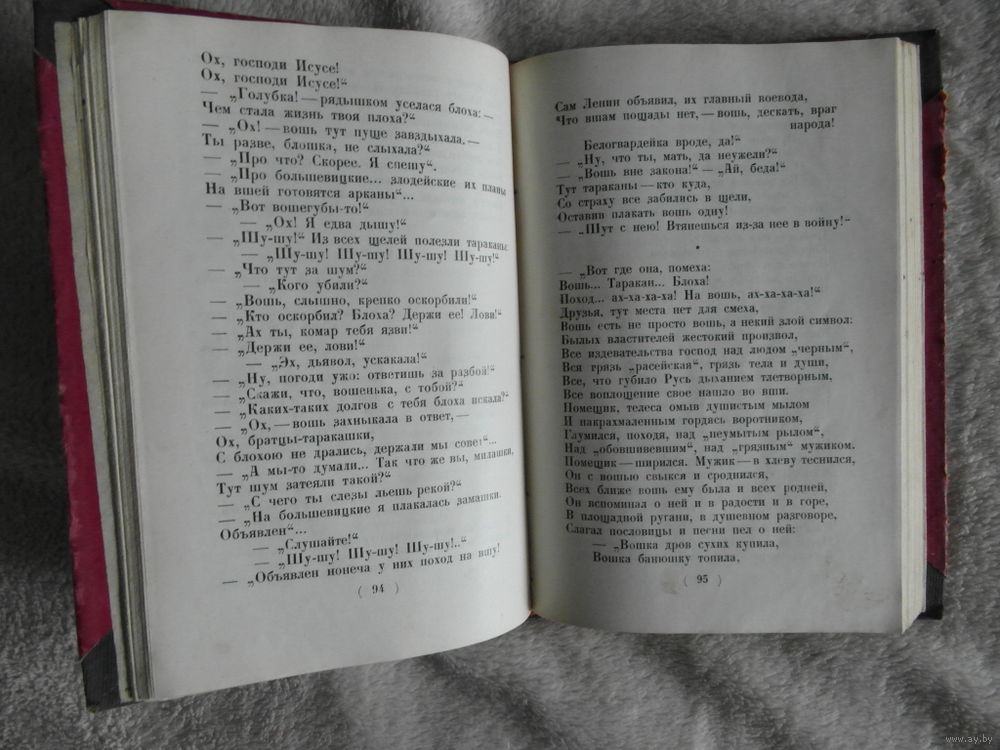 Ох, господи Исусе!
Ох, господи Исусе!“
— „Голубка! — рядышком уселася блоха: —
Чем стала жизнь твоя плоха?“
— „Ох! — вошь тут пуще завздыхала. —
Ты разве, блошка, не слыхала?“
— „Про что? Скорее. Я спешу“.
— „Про большевицкие... злодейские их планы
На вшей готовятся арканы“...
— „Вот вошегубы-то!“
— „Ох! Я едва дышу!“
— „Шу-шу!“ Из всех щелей полезли тараканы:
— „Шу-шу! Шу-шу! Шу-шу! Шу-шу!“
— „Что тут за шум?“
— „Кого убили?“
— „Вошь, слышно, крепко оскорбили!“
— „Кто оскорбил? Блоха? Держи ее! Лови!“
— „Ах ты, комар тебя язви!“
— „Держи ее, лови!“
— „Эх, дьявол, ускакала!“
— „Ну, погоди ужо: ответишь за разбой!“
— „Скажи, что, вошенька, с тобой?“
— „Каких-таких долгов с тебя блоха искала?“
— „Ох, — вошь захныкала в ответ, —
Ох, братцы-таракашки,
С блохою не дрались, держали мы совет“...
— „А мы-то думали... Так что же вы, милашки,
Тут шум затеяли такой?“
— „С чего ты слезы льешь рекой?“
— „На большевицкие я плакалась замашки.
Объявлен“...
— „Слушайте!“
— „Шу-шу! Шу-шу! Шу-шу!..“
— „Объявлен нонеча у них поход на вшу!
( 94 )
Сам Ленин объявил, их главный воевода,
Что вшам пощады нет, — вошь, дескать, враг
народа!
Белогвардейка вроде, да!“
— „Ну, что ты, мать, да неужели?“
— „Вошь вне закона!“ — „Ай, беда!“
Тут тараканы — кто куда,
Со страху все забились в щели,
Оставив плакать вошь одну!
— „Шут с нею! Втянешься из-за нее в войну!“
*
— „Вот где она, помеха:
Вошь... Таракан... Блоха!
Поход... ах-ха-ха-ха! На вошь, ах-ха-ха-ха!“
Друзья, тут места нет для смеха,
Вошь есть не просто вошь, а некий злой символ:
Былых властителей жестокий произвол,
Все издевательства господ над людом „черным“,
Вся грязь „расейская“, грязь тела и души,
Все, что губило Русь дыханием тлетворным,
Все воплощение свое нашло во вши.
Помещик, телеса омыв душистым мылом
И накрахмаленным гордясь воротником,
Глумился, походя, над „неумытым рылом“,
Над „обовшивевшим“, над „грязным“ мужиком.
Помещик — ширился. Мужик — в хлеву теснился,
Он с вошью свыкся и сроднился,
Всех ближе вошь ему была и всех родней,
Он вспоминал о ней и в радости и в горе,
В площадной ругани, в душевном разговоре,
Слагал пословицы и песни пел о ней:
— „Вошка дров сухих купила,
Вошка банюшку топила,
( 95 )
www.ay.by